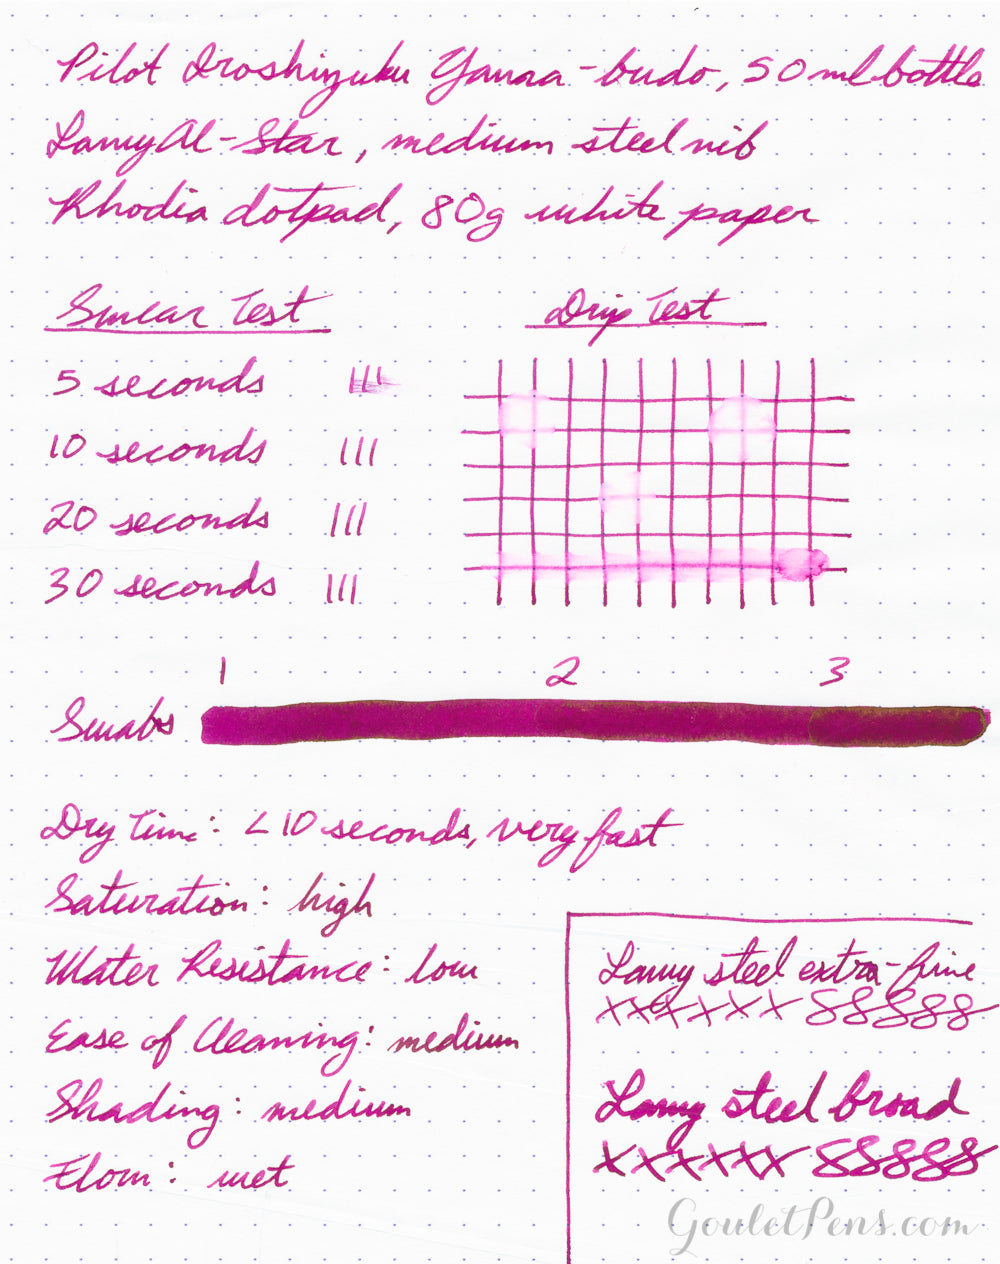 Pilot Iroshizuku Yama-budo, 50ml bottle
Lamy Al-Star, medium steel nib
Rhodia dotpad, 80g white paper
Smear Test
Drip Test
5 seconds
10 seconds
20 seconds
30 seconds
1 2 3
Swabs
Dry Time: < 10 seconds, very fast
Saturation: high
Water Resistance: low
Ease of Cleaning: medium
Shading: medium
Flow: wet
Lamy steel extra-fine
xxxxxx 88888
Lamy steel broad
xxxxxx 88888
GouletPens.com